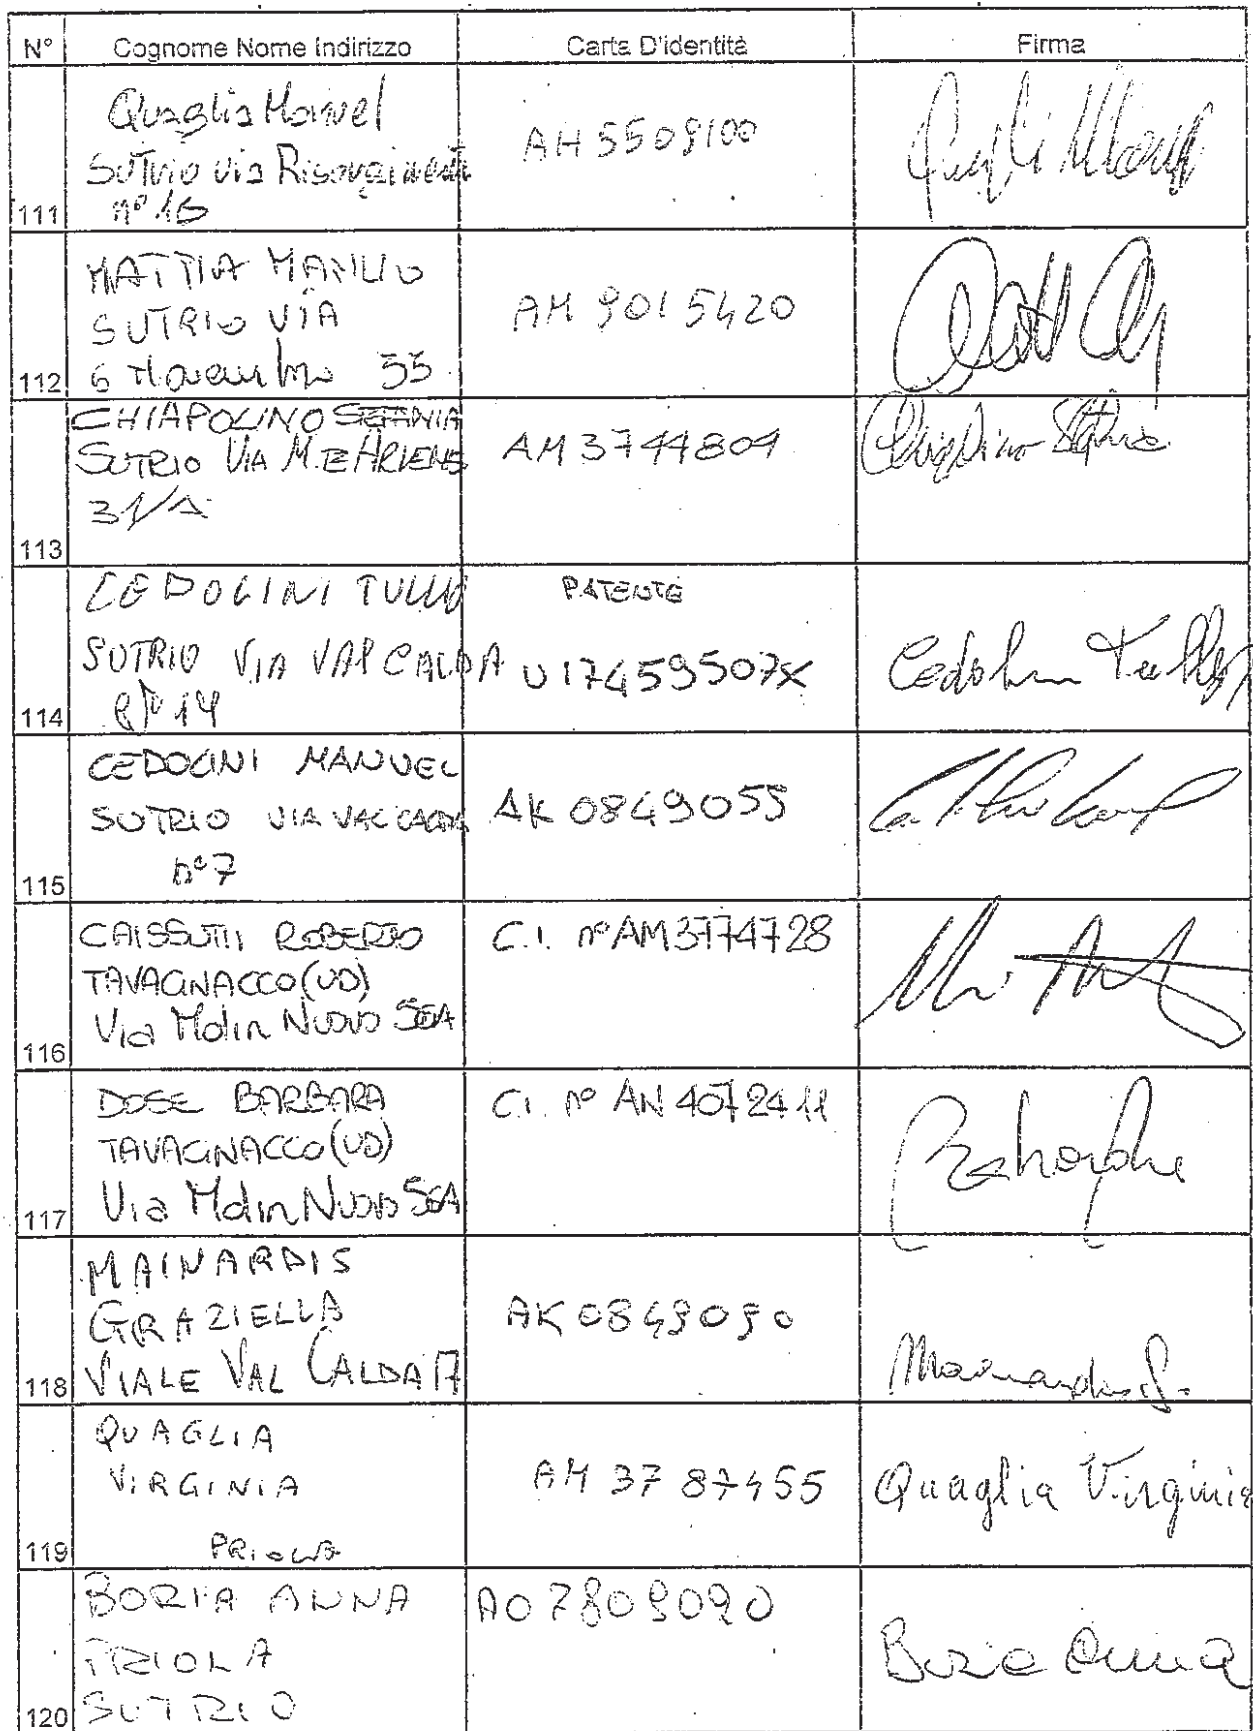 N° Cognome Nome Indirizzo Carta D'identità Firma
Quaglia Manuel
Sutrio via Risorgimento
n° 16
111 AM 5509100
MATTIA MANLIO
SUTRIO VIA
6 Novembre 55
112 AM 9015420
CHIAPOLINO STEFANIA
SUTRIO VIA M.TE ARVENIS
31/A
113 AM 3744804 Chiapolino Stefania
CEDOLINI TULLIO
SUTRIO VIA VAL CALDA
n° 14
114 PATENTE
U17459507X Cedolini Tullio
CEDOLINI MANUEL
SUTRIO VIA VAL CALDA
n° 7
115 AK 0849055
CAISSUTTI ROBERTO
TAVAGNACCO (UD)
Via Molin Nuovo 56A
116 C.I. n° AM3774728
DOSE BARBARA
TAVAGNACCO (UD)
Via Molin Nuovo 56A
117 C.I. n° AN 4072411
MAINARDIS
GRAZIELLA
VIALE VAL CALDA 17
118 AK 0849090 Mainardis G.
QUAGLIA
VIRGINIA
PRIOLA
119 AM 3787455 Quaglia Virginia
BORIA ANNA
PRIOLA
SUTRIO
120 AO 7809090 Boria Anna